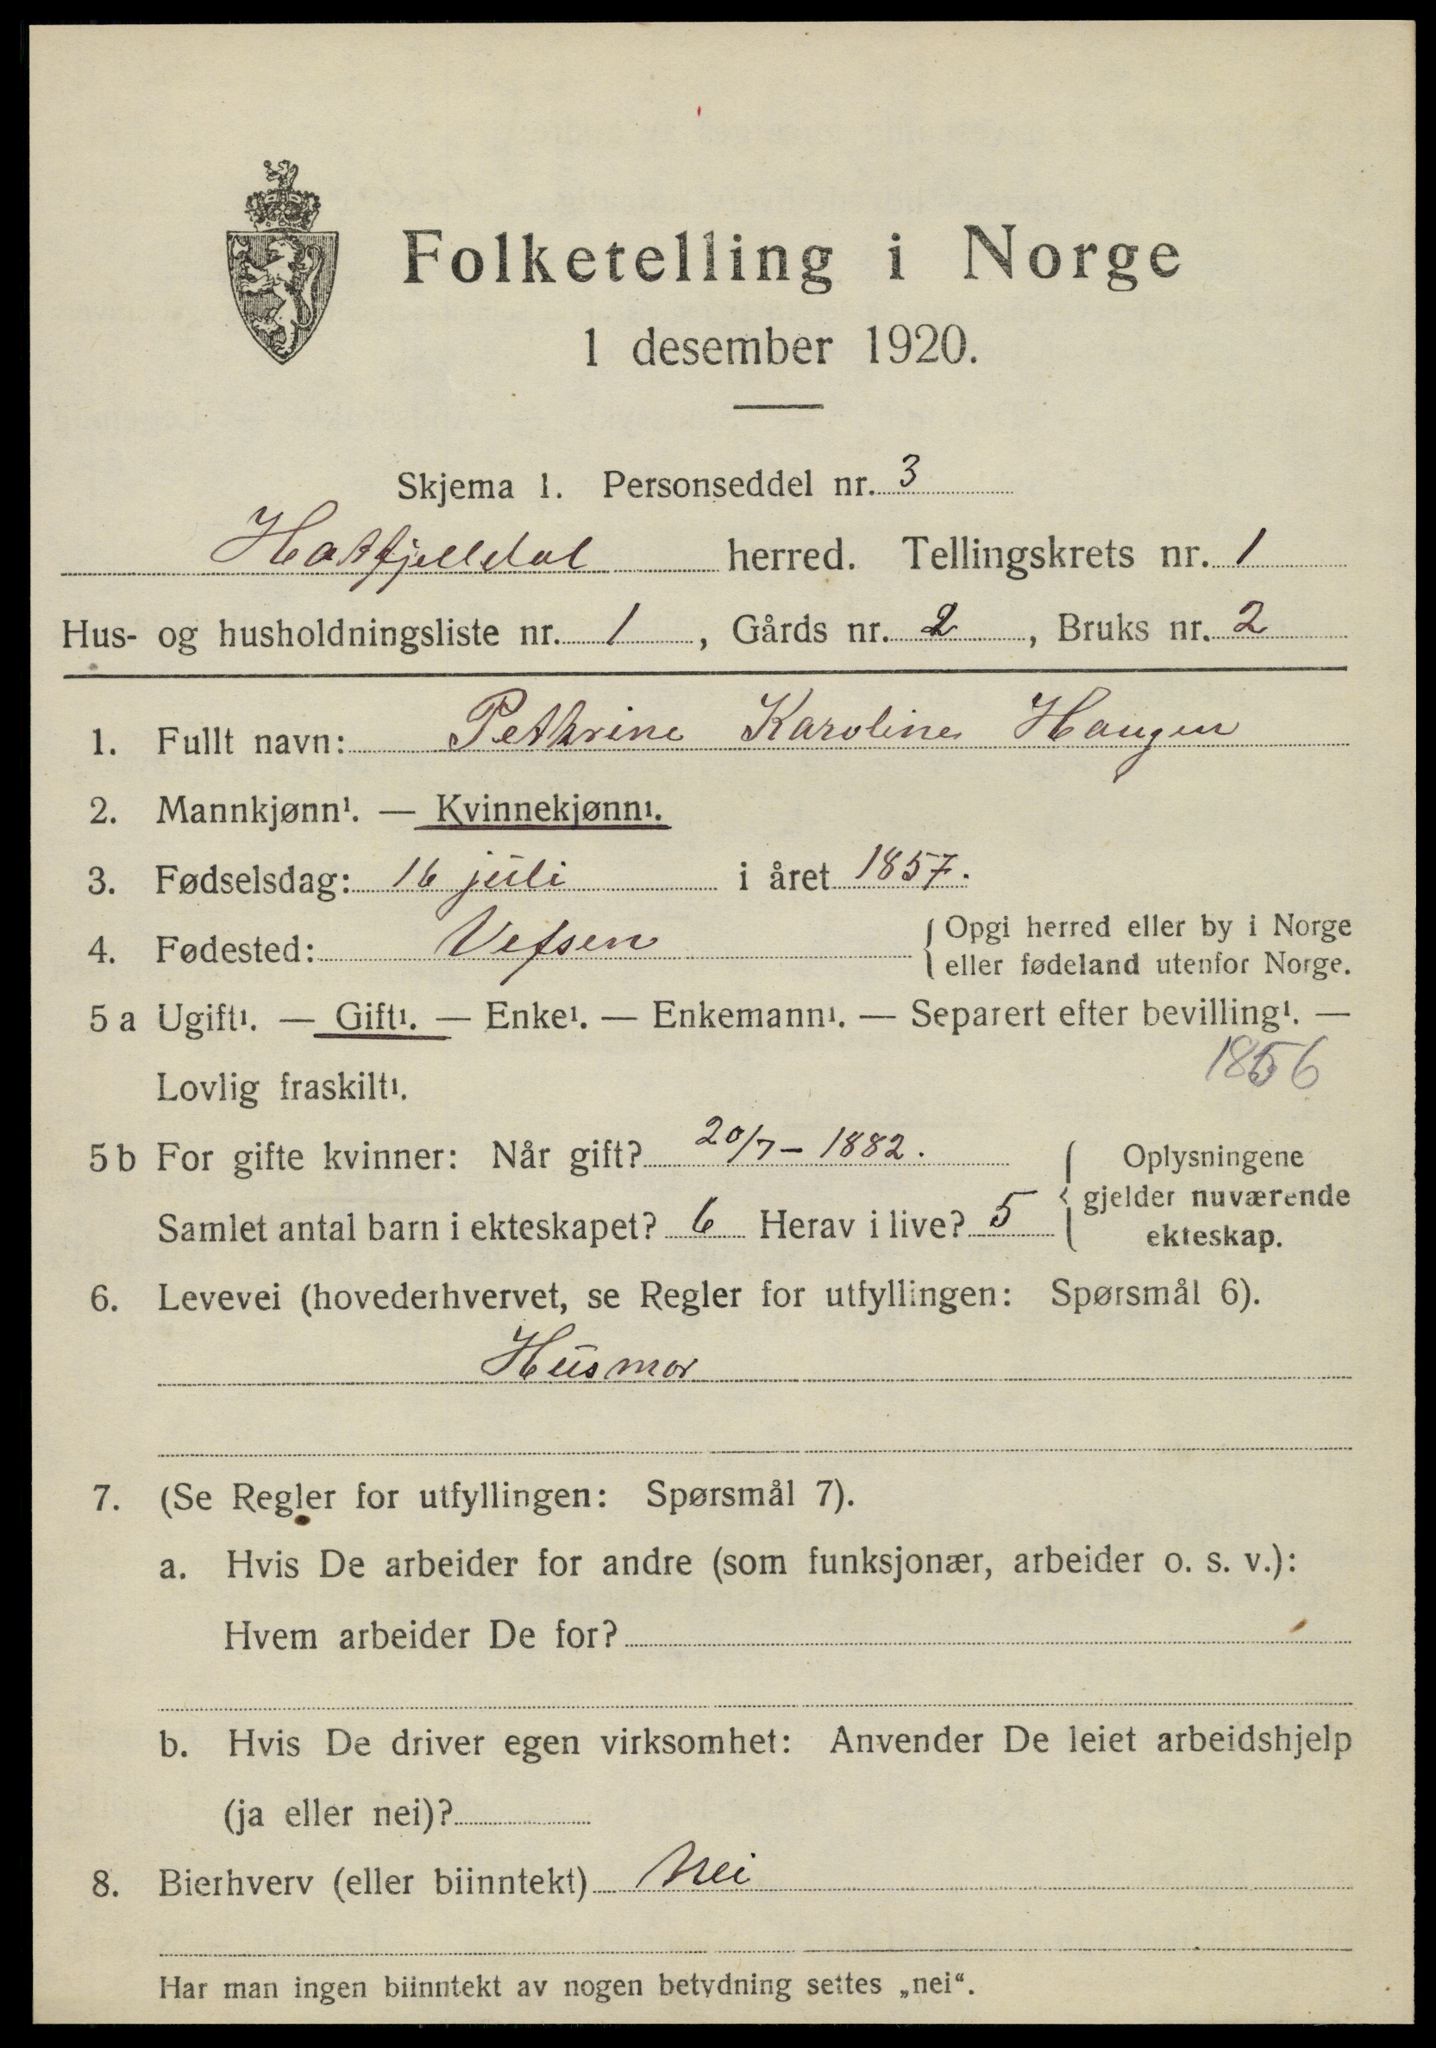 Folketelling i Norge
1 desember 1920.
Skjema 1. Personseddel nr. 3
Hatfjelldal herred. Tellingskrets nr. 1
Hus- og husholdningsliste nr. 1, Gårds nr. 2, Bruks nr. 2
1. Fullt navn: Pethrine Karoline Haugen
2. Mannkjønn¹. — Kvinnekjønn¹.
3. Fødselsdag: 16 juli i året 1857.
4. Fødested: Vefsen { Opgi herred eller by i Norge
eller fødeland utenfor Norge.
5 a Ugift¹. — Gift¹. — Enke¹. — Enkemann¹. — Separert efter bevilling¹. —
1856
Lovlig fraskilt¹.
5 b For gifte kvinner: Når gift? 20/7 – 1882. { Oplysningene
gjelder nuværende
Samlet antal barn i ekteskapet? 6 Herav i live? 5
ekteskap.
6. Levevei (hovederhvervet, se Regler for utfyllingen: Spørsmål 6).
Husmor
7. (Se Regler for utfyllingen: Spørsmål 7).
a. Hvis De arbeider for andre (som funksjonær, arbeider o. s. v.):
Hvem arbeider De for?
b. Hvis De driver egen virksomhet: Anvender De leiet arbeidshjelp
(ja eller nei)?
8. Bierhverv (eller biinntekt) Nei
Har man ingen biinntekt av nogen betydning settes „nei“.